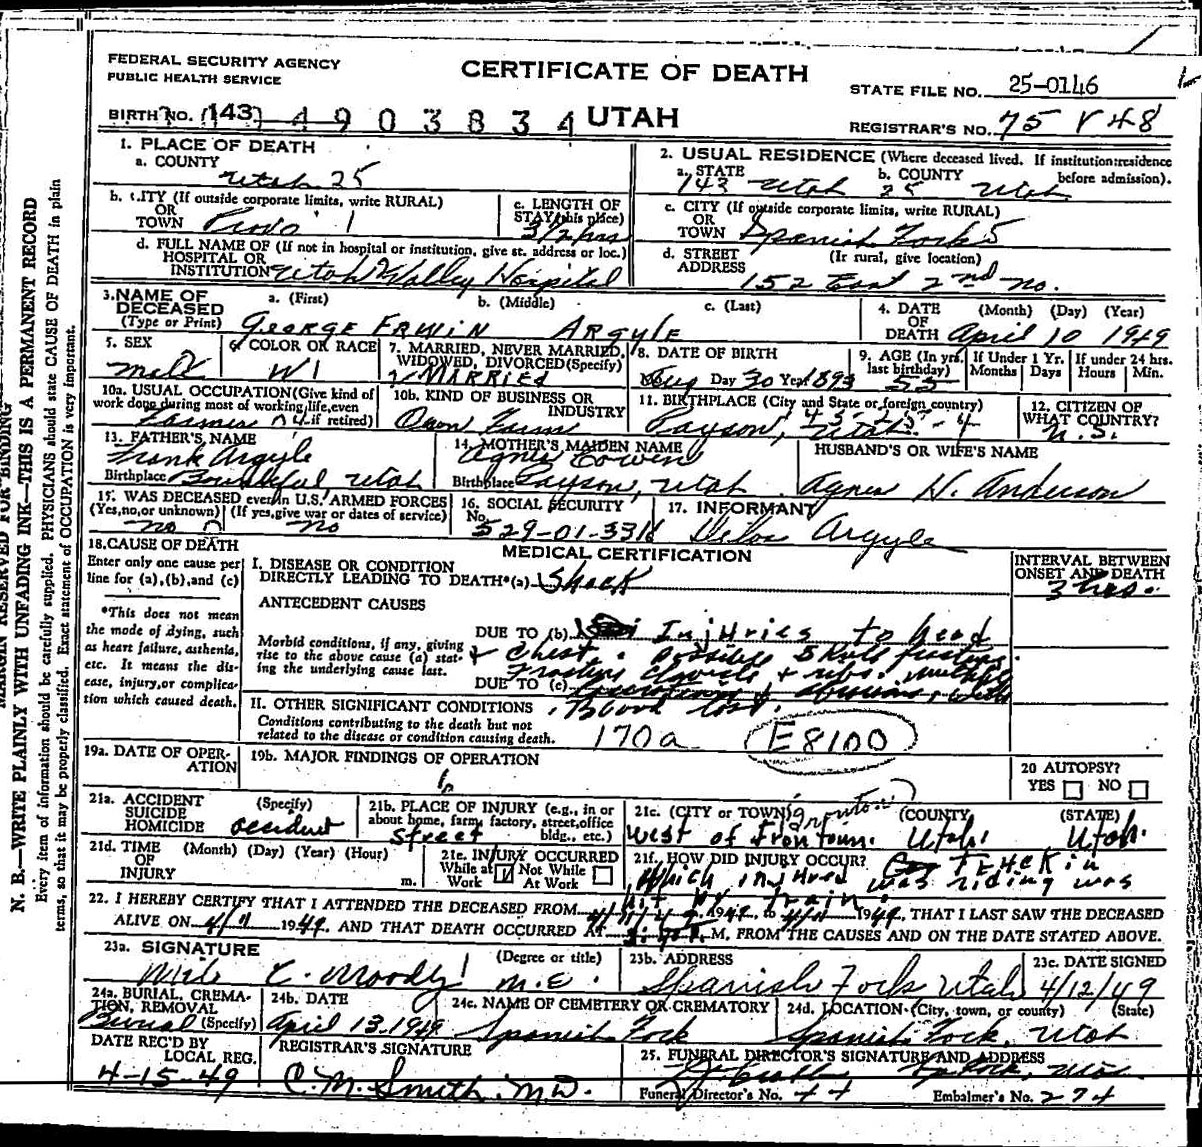 FEDERAL SECURITY AGENCY
PUBLIC HEALTH SERVICE
CERTIFICATE OF DEATH
UTAH
STATE FILE NO. 25-0146
BIRTH NO. 143 4903834
REGISTRAR'S NO. 75 V 48
1. PLACE OF DEATH
a. COUNTY Utah 25
2. USUAL RESIDENCE (Where deceased lived. If institution: residence before admission).
a. STATE 143 Utah b. COUNTY 25 Utah
b. CITY (If outside corporate limits, write RURAL) OR TOWN Provo 1
c. LENGTH OF STAY (this place) 3 1/2 hrs
c. CITY (If outside corporate limits, write RURAL) OR TOWN Spanish Fork 5
d. FULL NAME OF (If not in hospital or institution, give st. address or loc.) HOSPITAL OR INSTITUTION Utah Valley Hospital
d. STREET ADDRESS (Ir rural, give location) 152 East 2nd no.
3. NAME OF DECEASED (Type or Print)
a. (First) b. (Middle) c. (Last)
George Erwin Argyle
4. DATE OF DEATH (Month) (Day) (Year) April 10 1949
5. SEX Male
6. COLOR OR RACE W 1
7. MARRIED, NEVER MARRIED, WIDOWED, DIVORCED (Specify) MARRIED
8. DATE OF BIRTH Aug Day 30 Year 1893
9. AGE (In yrs. last birthday) 55
If Under 1 Yr. Months Days
If under 24 hrs. Hours Min.
10a. USUAL OCCUPATION (Give kind of work done during most of working life, even if retired) Farmer
10b. KIND OF BUSINESS OR INDUSTRY Own Farm
11. BIRTHPLACE (City and State or foreign country) Payson, Utah
12. CITIZEN OF WHAT COUNTRY? U.S.
13. FATHER'S NAME Frank Argyle
Birthplace Bountiful, Utah
14. MOTHER'S MAIDEN NAME Agnes Cowen
Birthplace Payson, Utah
HUSBAND'S OR WIFE'S NAME
Agnes H. Anderson
15. WAS DECEASED ever in U.S. ARMED FORCES
(Yes, no, or unknown) (If yes, give war or dates of service)
no no
16. SOCIAL SECURITY No. 529-01-3316
17. INFORMANT Argyle
18. CAUSE OF DEATH
Enter only one cause per line for (a), (b), and (c)
*This does not mean the mode of dying, such as heart failure, asthenia, etc. It means the disease, injury, or complication which caused death.
MEDICAL CERTIFICATION
INTERVAL BETWEEN ONSET AND DEATH
I. DISEASE OR CONDITION DIRECTLY LEADING TO DEATH* (a) Shock
3 hrs.
ANTECEDENT CAUSES
Morbid conditions, if any, giving rise to the above cause (a) stating the underlying cause last.
DUE TO (b) Injuries to head
+ Chest. possible skull fracture
Fracture clavicle + ribs. multiple
DUE TO (c) lacerations + abrasions, with
Blood lost.
II. OTHER SIGNIFICANT CONDITIONS
Conditions contributing to the death but not related to the disease or condition causing death.
170a E8100
19a. DATE OF OPERATION
19b. MAJOR FINDINGS OF OPERATION
20 AUTOPSY? YES NO
21a. ACCIDENT SUICIDE HOMICIDE (Specify) accident
21b. PLACE OF INJURY (e.g., in or about home, farm, factory, street, office bldg., etc.) Street
21c. (CITY or TOWN) (COUNTY) (STATE)
(Ironton)
West of Irontown. Utah. Utah.
21d. TIME OF INJURY (Month) (Day) (Year) (Hour) m.
21e. INJURY OCCURRED While at Work Not While At Work
21f. HOW DID INJURY OCCUR? Truck in
which injured was riding was
hit by train.
22. I HEREBY CERTIFY THAT I ATTENDED THE DECEASED FROM 4/11/49 1949 to 4/11 1949, THAT I LAST SAW THE DECEASED
ALIVE ON 4/11 1949. AND THAT DEATH OCCURRED AT M, FROM THE CAUSES AND ON THE DATE STATED ABOVE.
23a. SIGNATURE (Degree or title) C. Moody
23b. ADDRESS Spanish Fork Utah
23c. DATE SIGNED 4/12/49
24a. BURIAL, CREMATION, REMOVAL (Specify) Burial
24b. DATE April 13, 1949
24c. NAME OF CEMETERY OR CREMATORY Spanish Fork
24d. LOCATION (City, town, or county) (State) Spanish Fork, Utah
DATE REC'D BY LOCAL REG. 4-15-49
REGISTRAR'S SIGNATURE C. M. Smith, MD.
25. FUNERAL DIRECTOR'S SIGNATURE AND ADDRESS
Funeral Director's No. 44 Embalmer's No. 274
MARGIN RESERVED FOR BINDING
N. B.—WRITE PLAINLY WITH UNFADING INK—THIS IS A PERMANENT RECORD
Every item of information should be carefully supplied. PHYSICIANS should state CAUSE OF DEATH in plain
terms, so that it may be properly classified. Exact statement of OCCUPATION is very important.